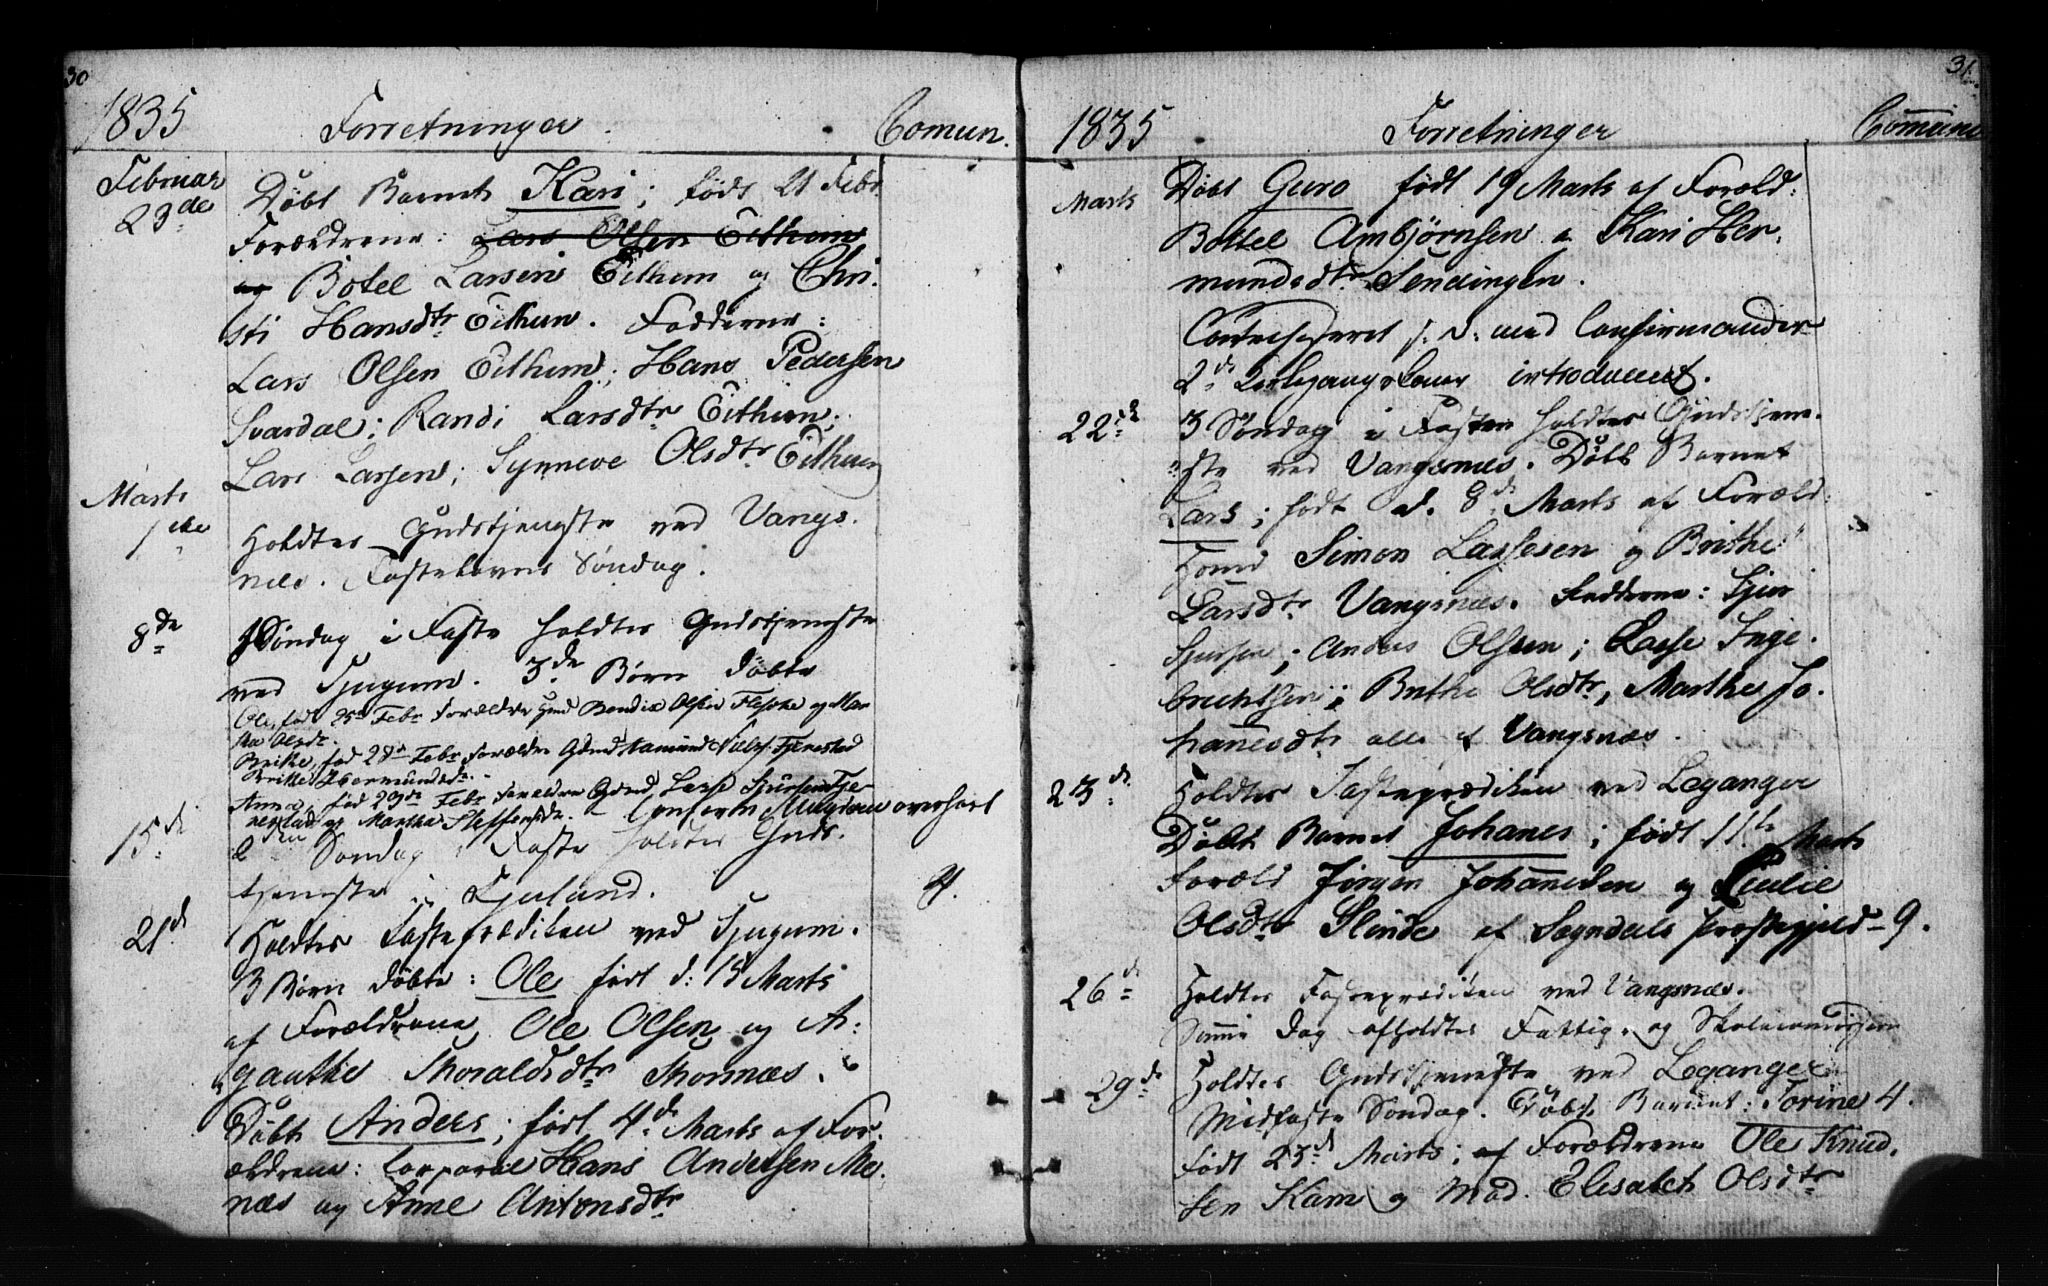 30
1835 Forretninger. Comun.
Februar
23de
Döbt Barnet Kari; födt 21 Febr.
Forældrene: Lars Olsen Eithum
Botel Larsen Eithum og Chri-
sti Hansdtr Eithun. Fadderne:
Lars Olsen Eithum; Hans Pedersen
Svardal; Randi Larsdtr Eithum;
Lars Larsen; Synneve Olsdtr Eithum
Marts
1ste
Holdtes Gudstjeneste ved Vangs-
næs. Fastelavns Söndag.
8de
1 Söndag i Faste holdtes Gudstjeneste
ved Tjugum. 3de Börn döbte
Ole, föd 25 Febr Forældre Gmd Bendix Olsen Flesche og Mar
tha Olsdr.
Brithe, föd 28 Febr Forældre Gmd Aamund Nielss. Tjenestad
Brithe Hermundsdr.
Anna, föd 23de Febr Forældre Gmd Lasse Sjursen Tje-
nestad og Martha Steffensdr. - Confirm overhørt
15de
2den Söndag i Faste holdtes Guds-
tjeneste i Fjerland. 4.
21de
Holdtes Fasteprædiken ved Tjugum.
3 Börn döbte: Ole födt d: 15 Marts
af Forældrene Ole Olsen og A-
gauthe Thoraldsdtr Thornæs.
Döbt Anders; födt 4de Marts af For-
ældrene: Corporal Hans Andersen Me-
næs og Anne Antonsdtr
31.
1835 Forretninger Comune
Marts
Döbt Guro födt 19 Marts af Foræld:
Bottel Ambjörnsen og Kari Her-
mundsdtr Sendingen.
Catechiseret s. D. med Confirmander
2de introduceret.
22de
3 Söndag i Fasten holdtes Gudstjene-
ste ved Vangsnæs. Döbt Barnet
Lars; födt d. 8de Marts af Foræld:
Gmd Simon Lassesen og Brithe
Larsdtr Vangsnæs. Fadderne: Sjur
Sjursen; Anders Olsen; Lasse Inge-
brichtsen; Brithe Olsdtr, Marthe Jo-
hannesdtr alle af Vangsnæs.
23de
Holdtes Fasteprædiken ved Leganger
Döbt Barnet Johanes; födt 11te Marts
Foræld Jörgen Johannesen og Cecilie
Olsdtr Slinde af Sogndals Præstegjeld - 9.
26de
Holdtes Fasteprædiken ved Vangsnæs.
Samme Dag afholdtes Fattig- og Skolecomission
29de
Holdtes Gudstjeneste ved Leganger
Midfaste Söndag. Döbt Barnet: Torine 4.
födt 23de Marts; af Forældrene Ole Knud-
sen Kam og Mad. Elisabeth Olsdtr